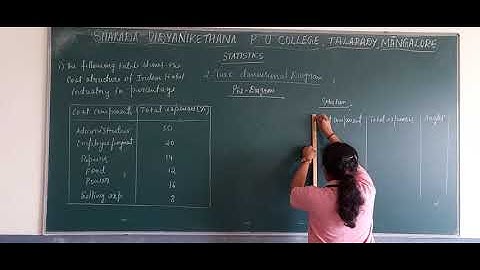 SHARADA VIDYANIKETHANA P U COLLEGE, TALAPADY, MANGALORE
STATISTICS
1) The following table shows the
cost structure of Indian Hotel
Industry in percentage
2. Two dimensional Diagram
Pie-Diagram
Cost component Total expenses (%)
Administrative 30
Employee payment 20
Repairs 14
Food 12
Power 16
Selling exp 8
Solution
component Total expenses Angles